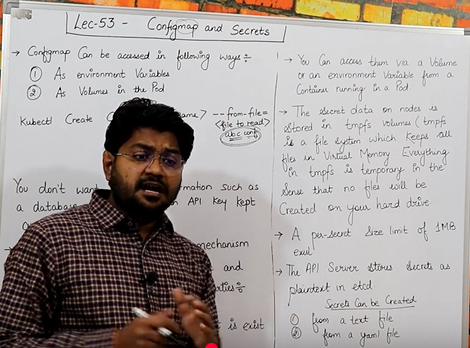 Lec-53 - Configmap and Secrets
→ Configmap Can be accessed in following ways÷
① As environment Variables
② As Volumes in the Pod
Kubectl Create C name> --from-file=
<file to read>
abc.conf
You don't want mation such as
a database API Key kept
mechanism
and
is exist
→ You Can access them via a Volume
or an environment Variable from a
Container running in a Pod
→ The secret data on nodes is
stored in tmpfs Volumes (tmpfs
is a file system which keeps all
files in Virtual Memory Everything
in tmpfs is temporary in the
Sense that no files will be
Created on your hard drive
→ A per-secret Size limit of 1MB
exist
→ The API Server stores Secrets as
plaintext in etcd
Secrets Can be Created
① from a text file
② from a yaml file